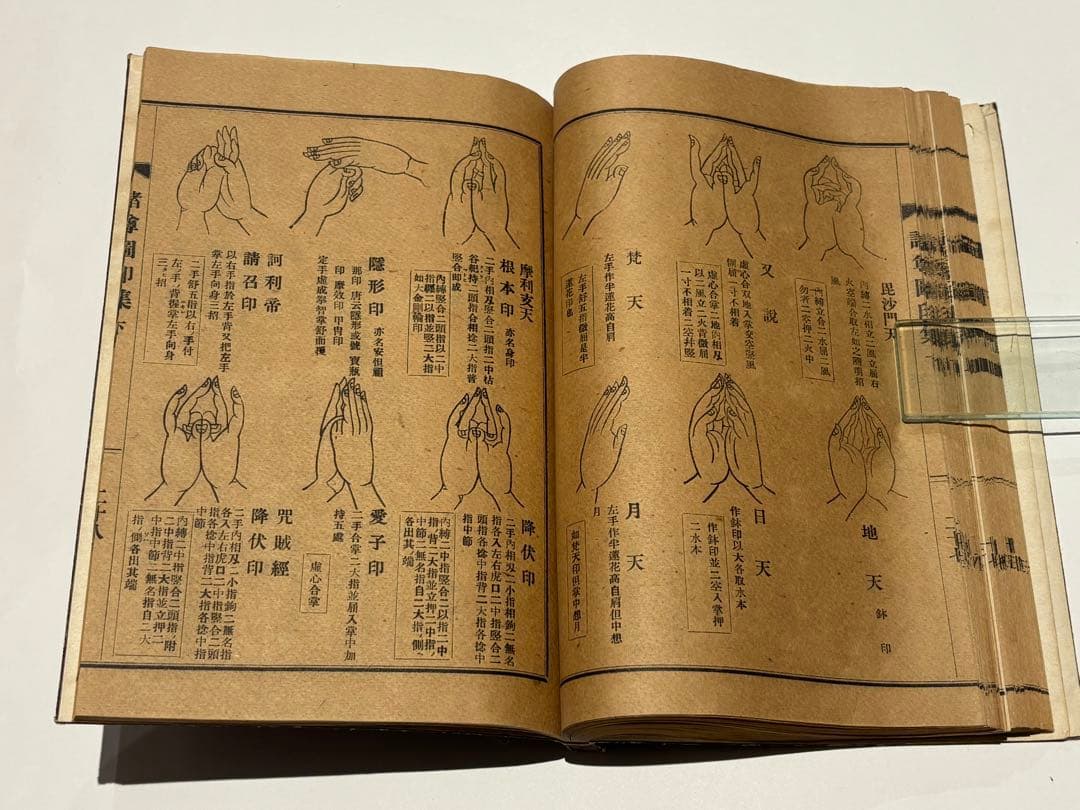 毘沙門天
內縛二水相立二風立屈右
火空端合取左如之隨明招
風
內縛立合二水屈二風
勿著二空押二火中
又說
虛心合掌二地相叉
以二風二火背微屈
一寸不相着二空並竪
梵天
左手作半蓮花高自肩
左手舒五指微屈是半
蓮花印也
地天
鉢印
日天
作鉢印以大各取水本
作鉢印並二空入掌押
二水本
月天
左手作半蓮花高自肩但中想
月
如梵天印但掌中想月
摩利支天
根本印
亦名身印
二手內相叉竪合二頭指二中㧡
竪合即成
內縛竪合二頭指以二中
指纒二以指並竪二大指
如大金剛輪印
隱形印
亦名安怛祖
那印唐云隱形或號寶瓶
印摩效印甲冑印
定手虛成拳智掌舒而覆
訶利帝
請召印
以右手指於左手背又把左手
掌左手向身三招
二手舒五指以右手付
左手背握掌左手向身
三招
降伏印
二手內相叉二小指相鉤二無名
指各入左右虎口二中指竪合二
頭指各捻中指背二大指各捻中
指中節
內縛二中指竪合二以指二中
指背二大指並立押二中指
中節二無名指自二大指側
各出其端
愛子印
二手合掌二大指並屈入掌中加
持五處
虛心合掌
咒賊經
降伏印
二手內相叉二小指鉤二無名指
各入左右虎口二中指竪合二頭
指各捻二中指背二大指各捻中指
中節
內縛二中指竪合二頭指附
二中指背二大指並立押二
中指中節二無名指自二大
指側各出其端
諸尊圖印集下
二十八